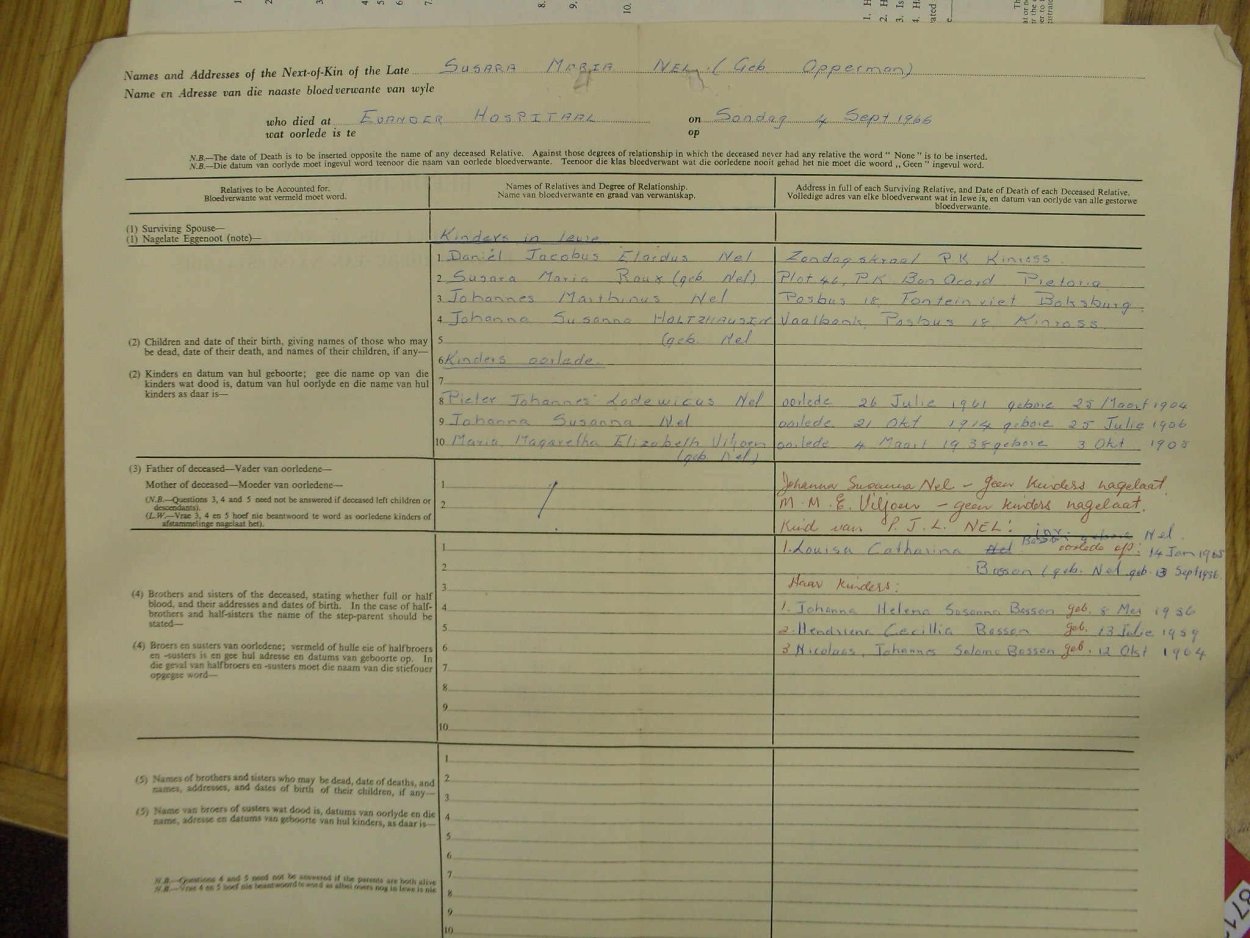 Names and Addresses of the Next-of-Kin of the Late SUSARA MARIA NEL (Geb Opperman)
Name en Adresse van die naaste bloedverwante van wyle
who died at EVANDER HOSPITAAL on Sondag 4 Sept 1966
wat oorlede is te op
N.B.—The date of Death is to be inserted opposite the name of any deceased Relative. Against those degrees of relationship in which the deceased never had any relative the word " None " is to be inserted.
N.B.—Die datum van oorlyde moet ingevul word teenoor die naam van oorlede bloedverwante. Teenoor die klas bloedverwant wat die oorledene nooit gehad het nie moet die woord „ Geen " ingevul word.
Relatives to be Accounted for.
Bloedverwante wat vermeld moet word.
Names of Relatives and Degree of Relationship.
Name van bloedverwante en graad van verwantskap.
Address in full of each Surviving Relative, and Date of Death of each Deceased Relative.
Volledige adres van elke bloedverwant wat in lewe is, en datum van oorlyde van alle gestorwe
bloedverwante.
(1) Surviving Spouse—
(1) Nagelate Eggenoot (note)—
Kinders in lewe
1 Daniël Jacobus Elardus Nel Zondagskraal P.K Kinross.
2 Susara Maria Roux (geb Nel) Plot 46, P.K. Bon Acord Pretoria
3 Johannes Marthinus Nel Posbus 18, Fonteinriet Boksburg
4 Johanna Susanna HOLTZHAUSEN Vaalbank, Posbus 18, Kinross.
5 (geb. Nel
6 Kinders oorlede
7
8 Pieter Johannes Lodewicus Nel oorlede 26 Julie 1961 gebore 25 Maart 1904
9 Johanna Susanna Nel oorlede 21 Okt 1914 gebore 25 Julie 1906
10 Maria Magaretha Elizabeth Viljoen oorlede 4 Maart 1938 gebore 3 Okt 1908
(geb. Nel)
(2) Children and date of their birth, giving names of those who may
be dead, date of their death, and names of their children, if any—
(2) Kinders en datum van hul geboorte; gee die name op van die
kinders wat dood is, datum van hul oorlyde en die name van hul
kinders as daar is—
(3) Father of deceased—Vader van oorledene—
Mother of deceased—Moeder van oorledene—
(N.B.—Questions 3, 4 and 5 need not be answered if deceased left children or
descendants).
(L.W.—Vrae 3, 4 en 5 hoef nie beantwoord te word as oorledene kinders of
afstammelinge nagelaat het).
1
2
Johanna Susanna Nel - geen kinders nagelaat.
M. M. E. Viljoen - geen kinders nagelaat.
Kind van P. J. L. NEL:
1. Louisa Catharina Nel oorlede op: 14 Jan 1965
Bosson (geb. Nel geb. 13 Sept 1936
Haar kinders:
1. Johanna Helena Susanna Bosson geb. 8 Mei 1956
2. Hendriena Cecillia Bosson geb. 13 Julie 1959
3 Nicolaas Johannes Salomo Bosson geb. 12 Okt 1964
(4) Brothers and sisters of the deceased, stating whether full or half
blood, and their addresses and dates of birth. In the case of half-
brothers and half-sisters the name of the step-parent should be
stated—
(4) Broers en susters van oorledene; vermeld of hulle eie of halfbroers
en -susters is en gee hul adresse en datums van geboorte op. In
die geval van halfbroers en -susters moet die naam van die stiefouer
opgegee word—
1
2
3
4
5
6
7
8
9
10
(5) Names of brothers and sisters who may be dead, date of deaths, and
names, addresses, and dates of birth of their children, if any—
(5) Name van broers of susters wat dood is, datums van oorlyde en die
name, adresse en datums van geboorte van hul kinders, as daar is—
1
2
3
4
5
6
7
8
9
10
N.B.—Questions 4 and 5 need not be answered if the parents are both alive
N.B.—Vrae 4 en 5 hoef nie beantwoord te word as albei ouers nog in lewe is nie